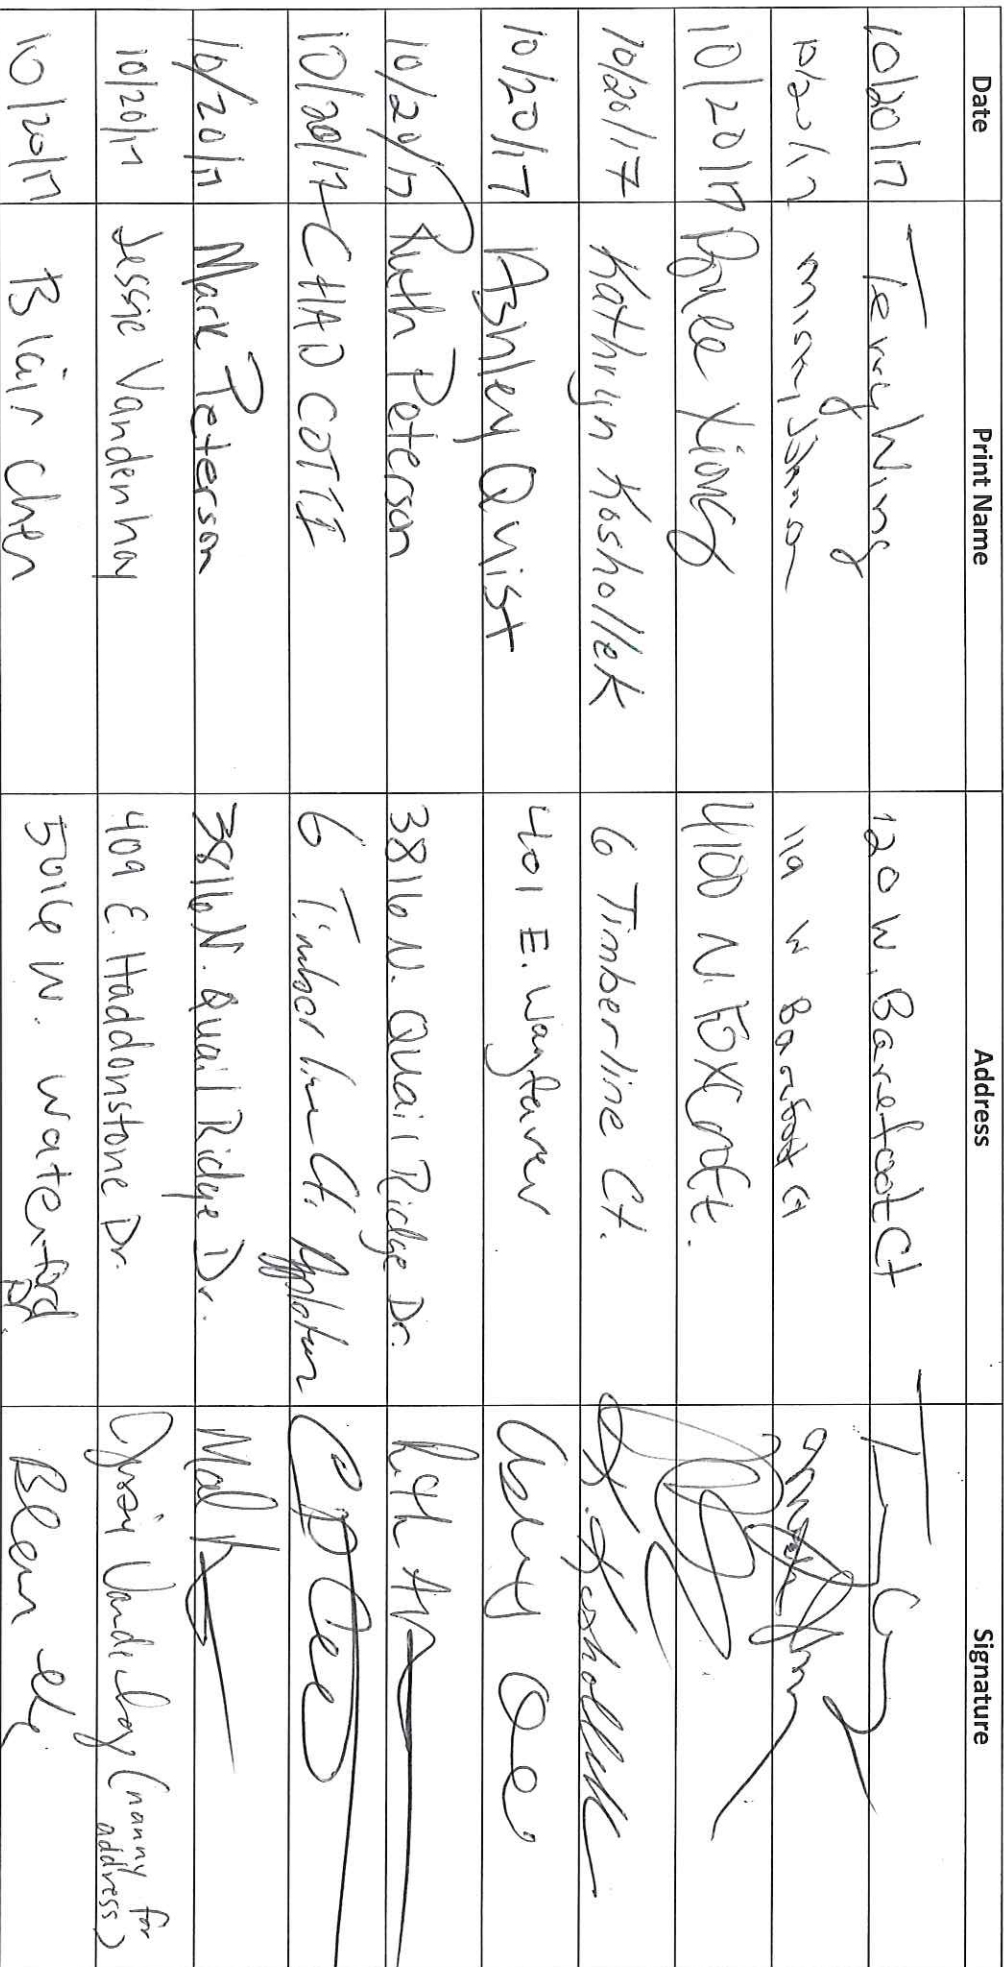 Date Print Name Address Signature
10/20/17 Terry Wing 120 W. Barefoot Ct
10/20/17 119 W Barefoot Ct
10/20/17 Xiong 4100 N. Foxcroft.
10/20/17 Kathryn Koshollek 6 Timberline Ct. K. Koshollek
10/20/17 Ashley Quist 401 E. Wayfarer
10/20/17 Ruth Peterson 3816 N. Quail Ridge Dr.
10/20/17 CHAD COTTI 6 Timberline Ct. Appleton
10/20/17 Mark Peterson 3816 N. Quail Ridge Dr.
10/20/17 Jessie Vandenhoy 409 E. Haddonstone Dr. (nanny for
address)
10/20/17 Blair Chen 5016 W. Waterford